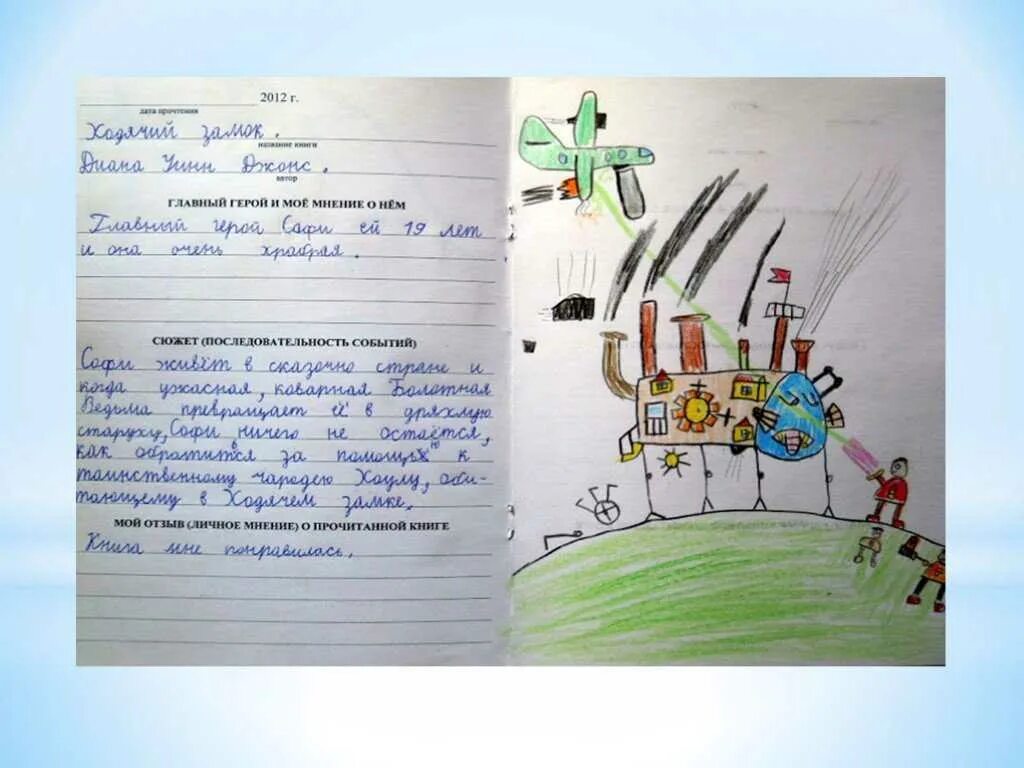 2012 г.
дата прочтения
Ходячий замок.
название книги
Диана Уинн Джонс.
автор
ГЛАВНЫЙ ГЕРОЙ И МОЁ МНЕНИЕ О НЁМ
Главный герой Софи ей 19 лет
и она очень храбрая.
СЮЖЕТ (ПОСЛЕДОВАТЕЛЬНОСТЬ СОБЫТИЙ)
Софи живёт в сказочно стране и
когда ужасная, коварная Болотная
Ведьма превращает её в дряхлую
старуху, Софи ничего не остаётся,
как обратится за помощью к
таинственному чародею Хоулу, оби-
тающему в Ходячем замке.
МОЙ ОТЗЫВ (ЛИЧНОЕ МНЕНИЕ) О ПРОЧИТАННОЙ КНИГЕ
Книга мне понравилась.